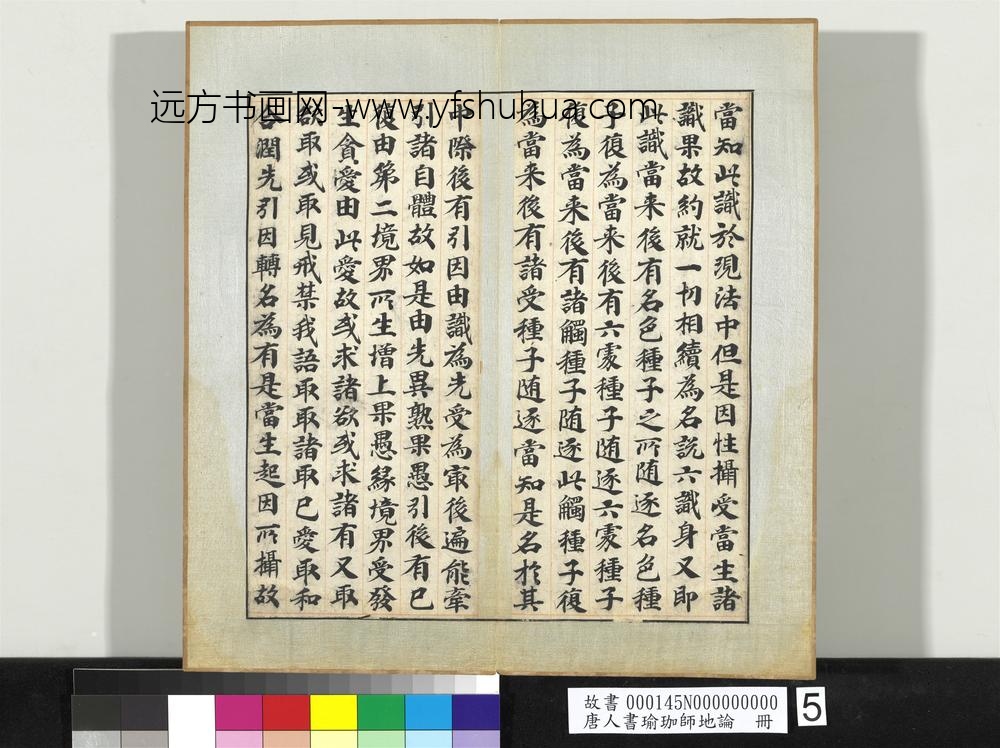 远方书画网-www.yfshuhua.com
當知此識於現法中但是因性攝受當生諸
識果故約就一切相續為名說六識身又即
此識當来後有名色種子之所随逐名色種
子復為當来後有六處種子随逐六處種子
復為當来後有諸觸種子随逐此觸種子復
為當来後有諸受種子随逐當知是名於其
中際後有引因由識為先受為㝡後遍能牽
引諸自體故如是由先異熟果愚引後有已
復由第二境界所生增上果愚緣境界受發
生貪愛由此愛故或求諸欲或求諸有又取
欲取或取見戒禁我語取取諸取已愛取和
合潤先引因轉名為有是當生起因所攝故
故書 000145N000000000
唐人書瑜珈師地論 冊
5